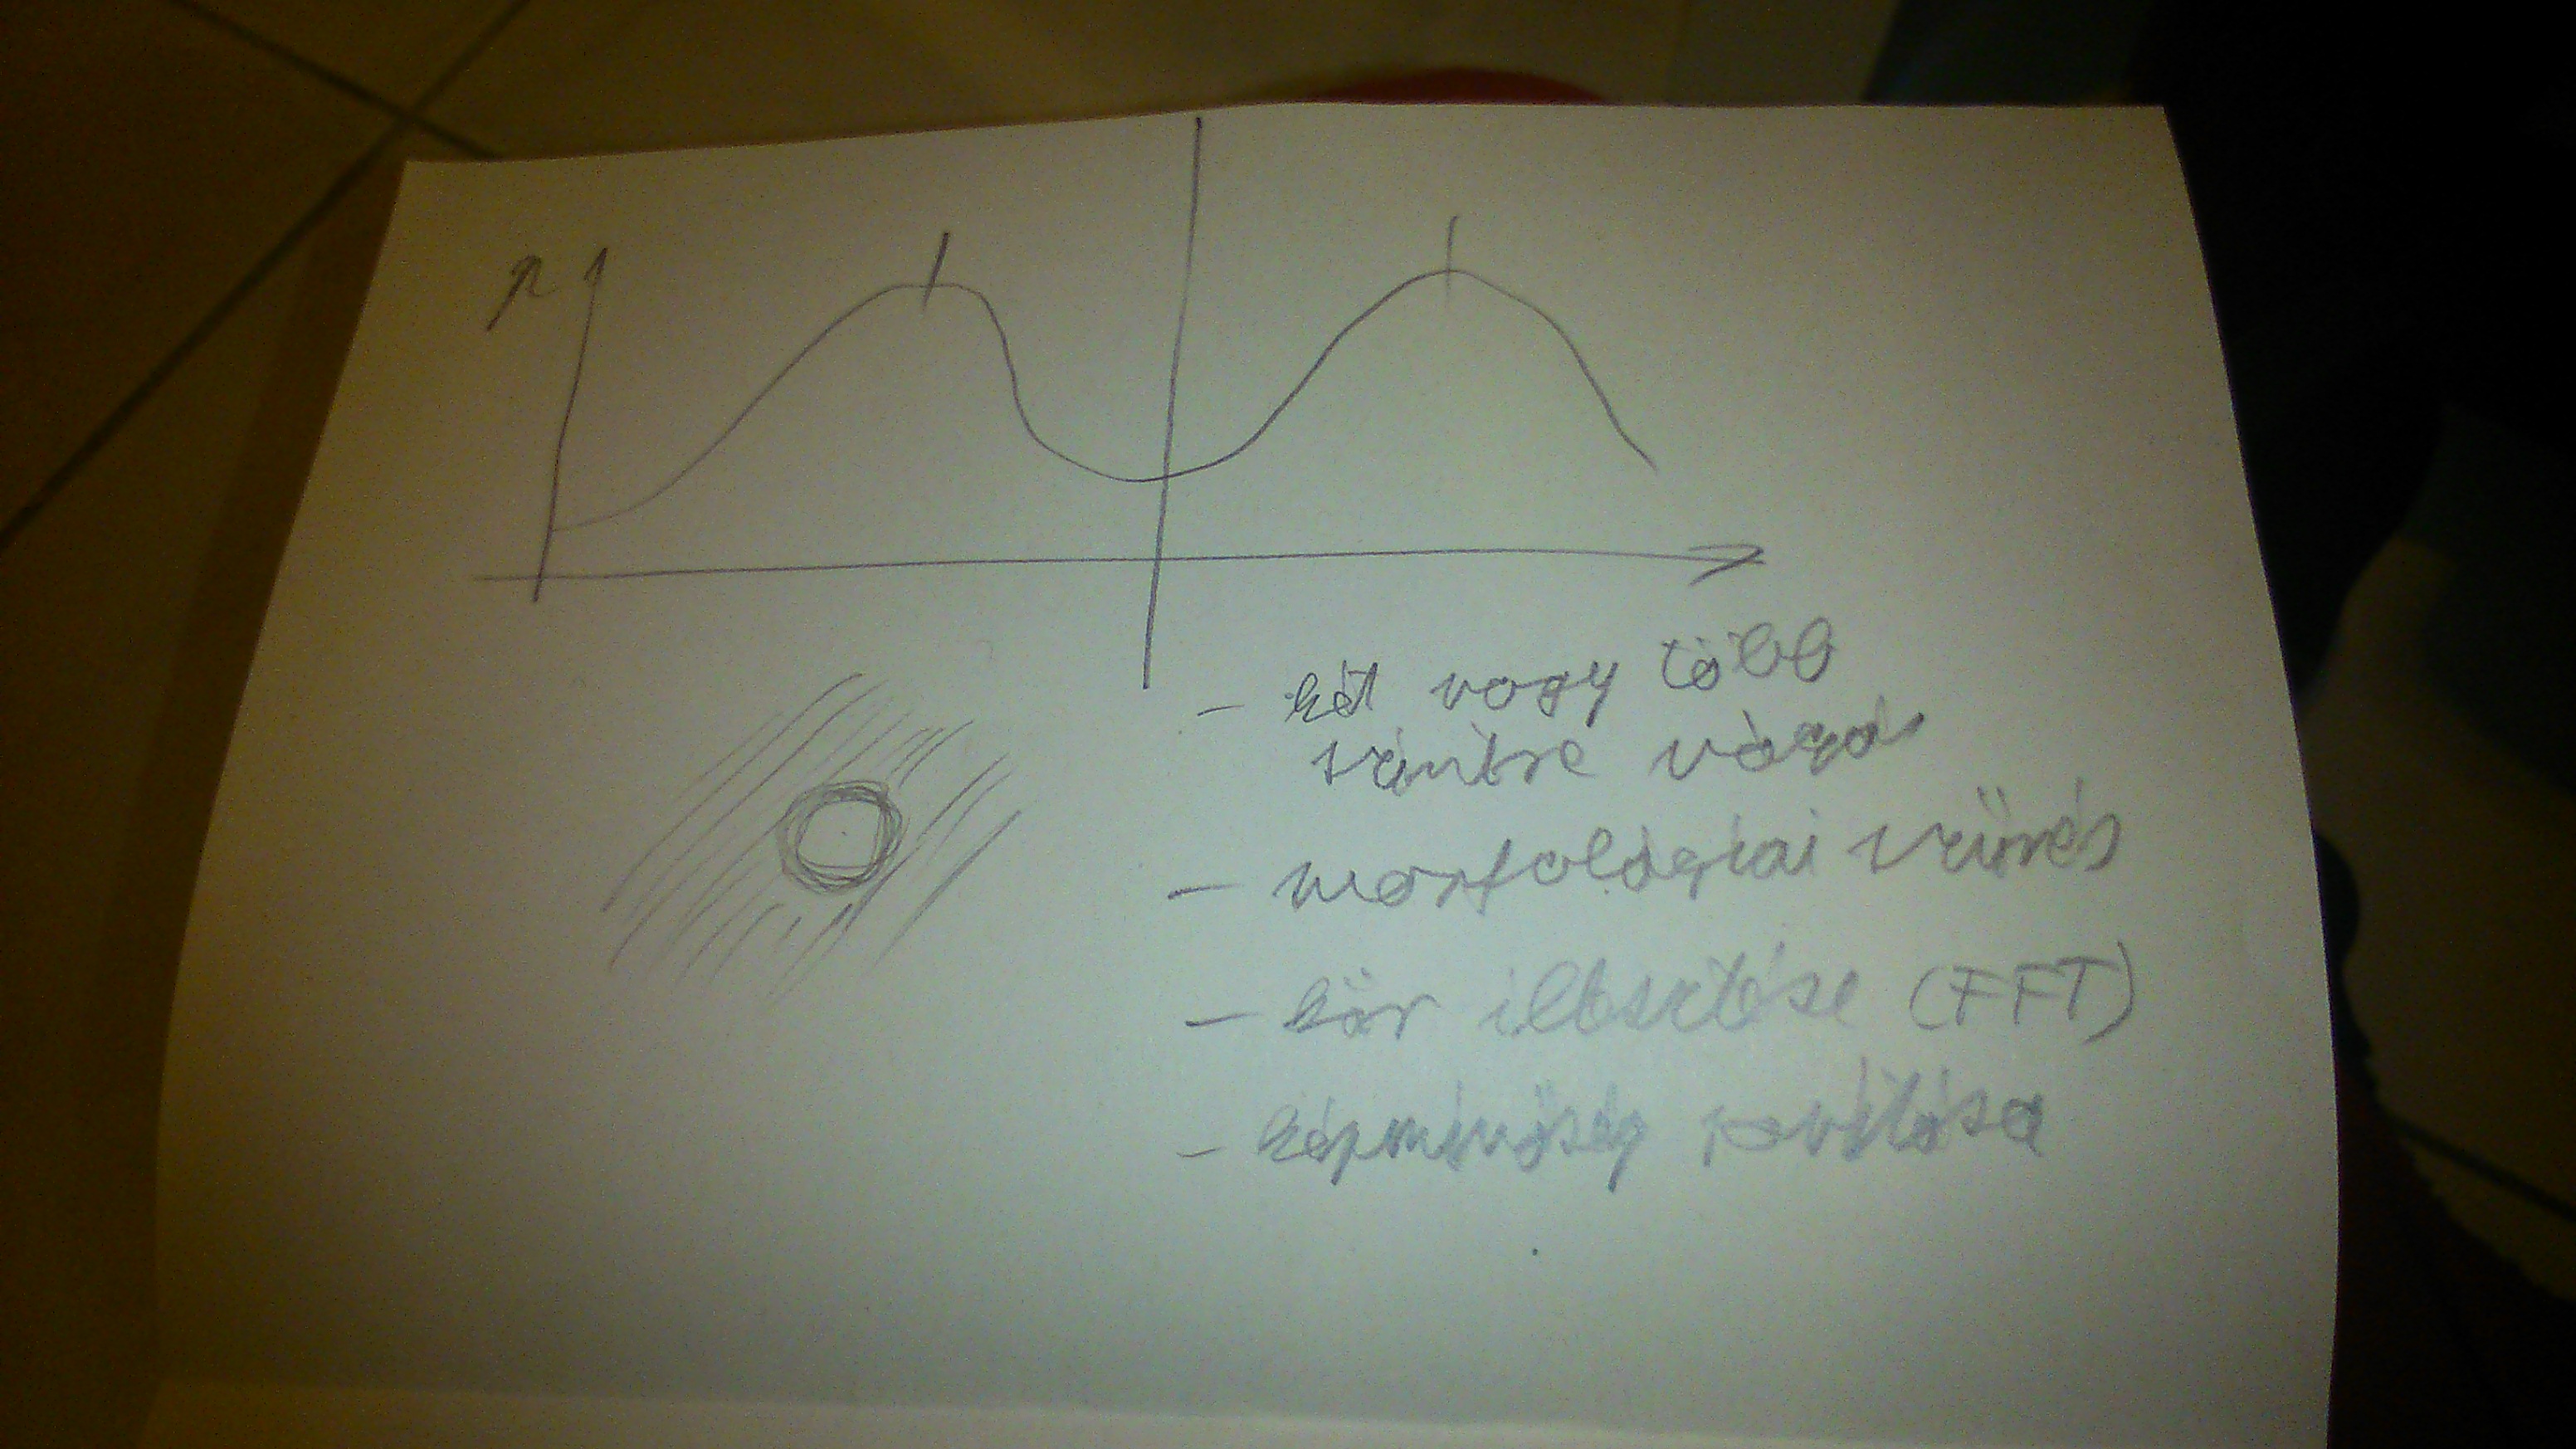 n
- két vagy több
szintre vágás
- morfológiai szűrés
- kör illesztése (FFT)
- képminőség javítása